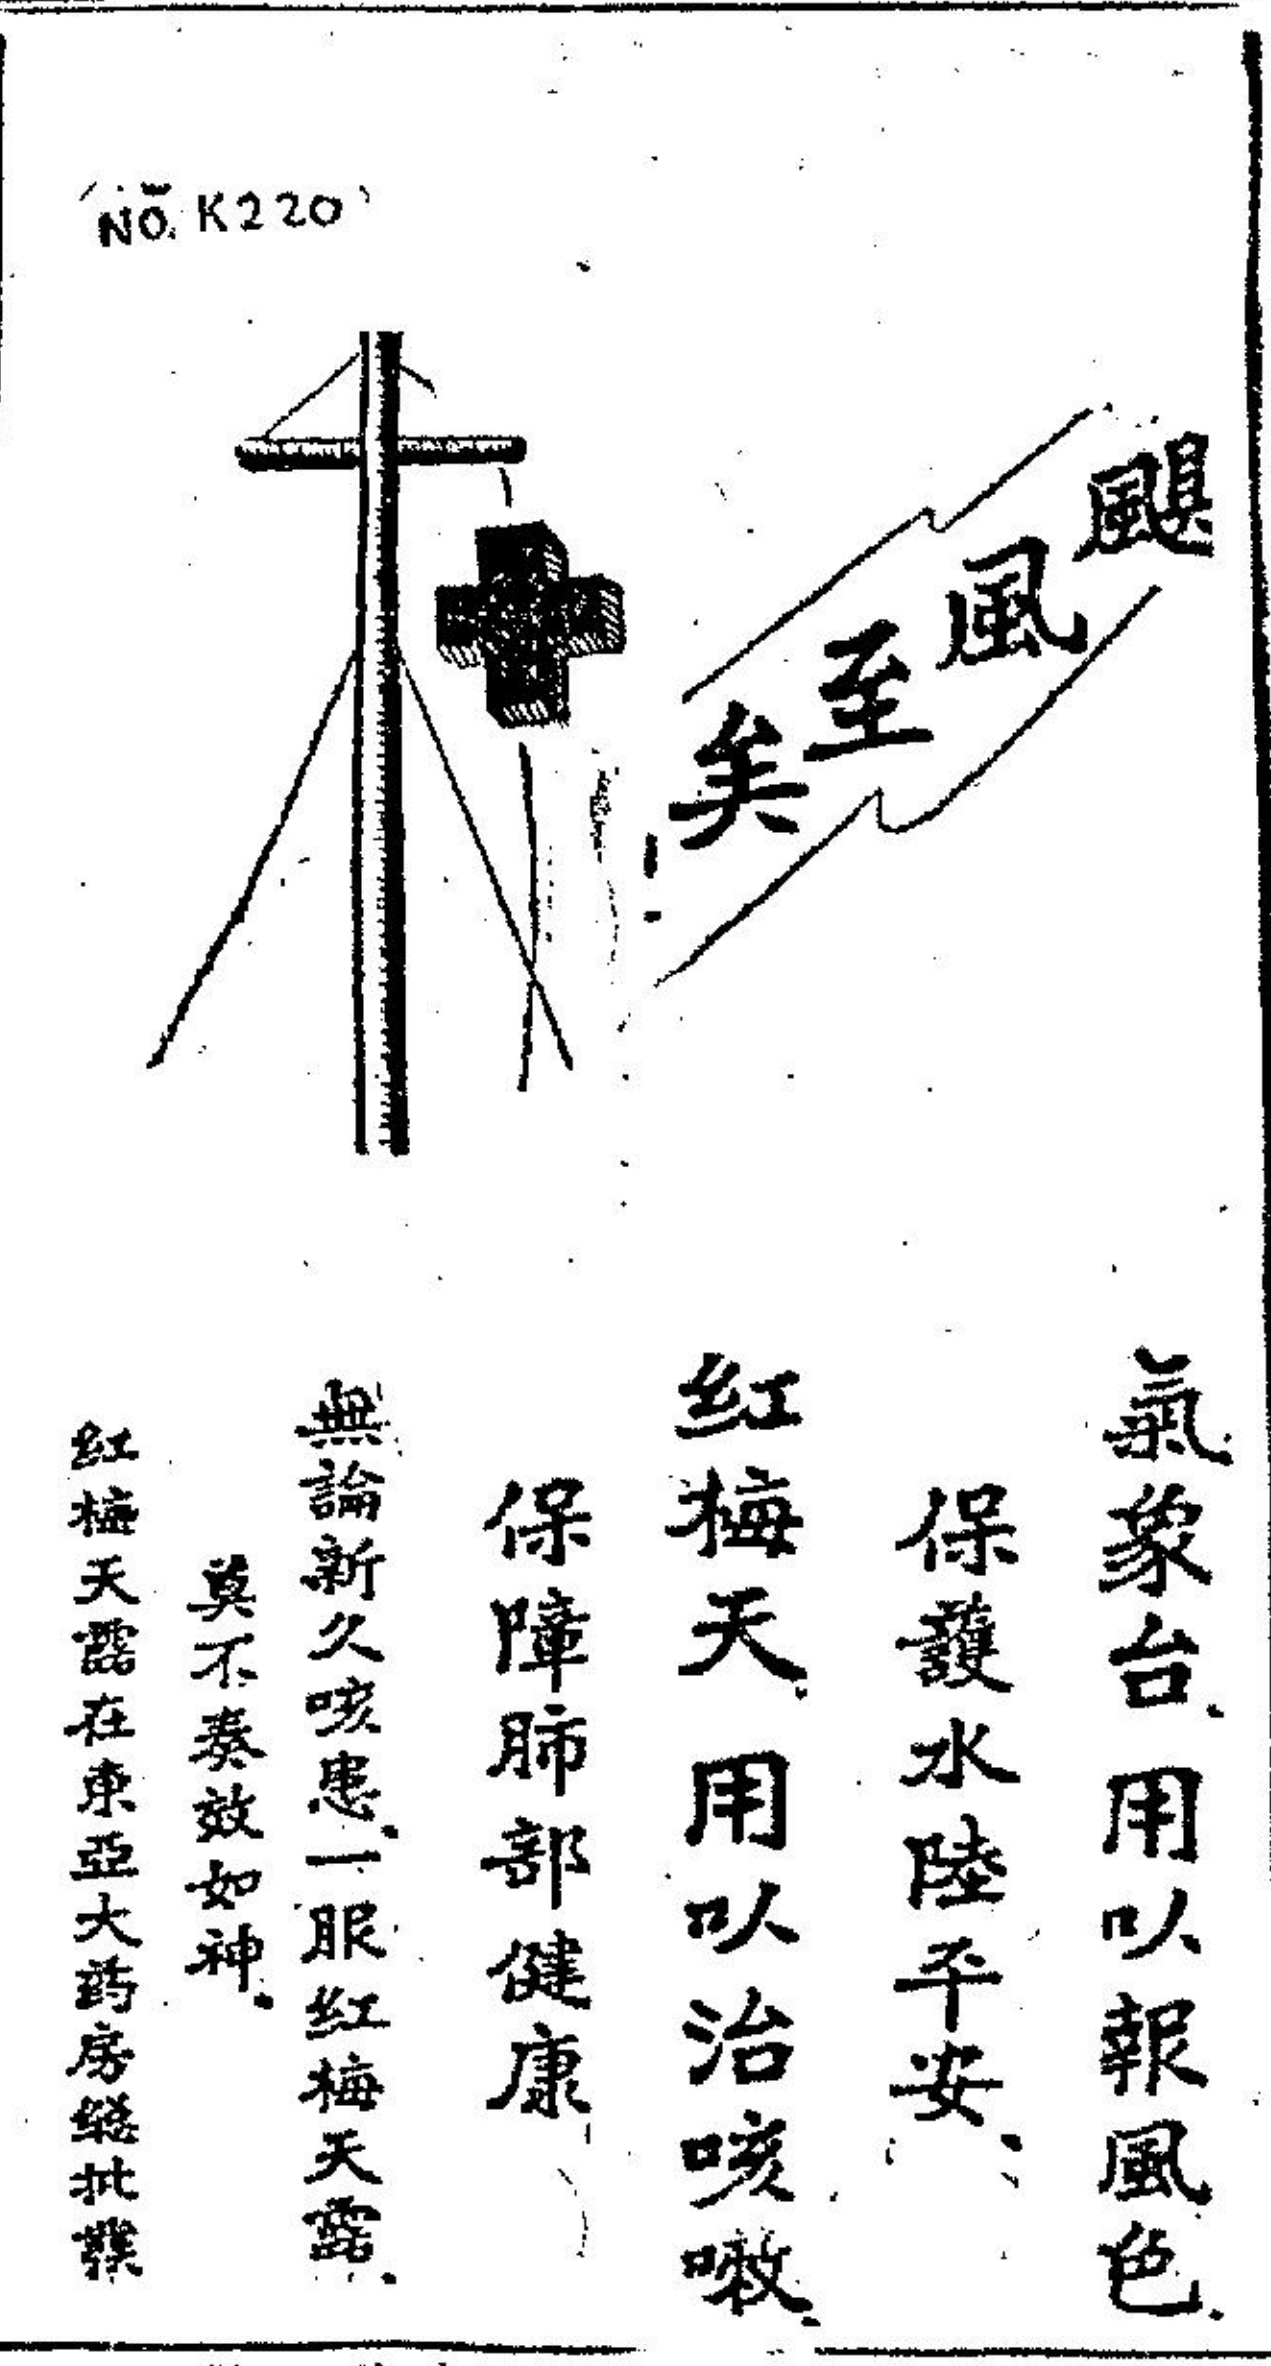 NO. K220
颶風至矣!
氣象台.用以報風色.
保護水陸平安、
红梅天.用以治咳嗽.
保障肺部健康
無論新久咳患.一服红梅天露.
莫不奏效如神.
红梅天露在東亞大药房總批發